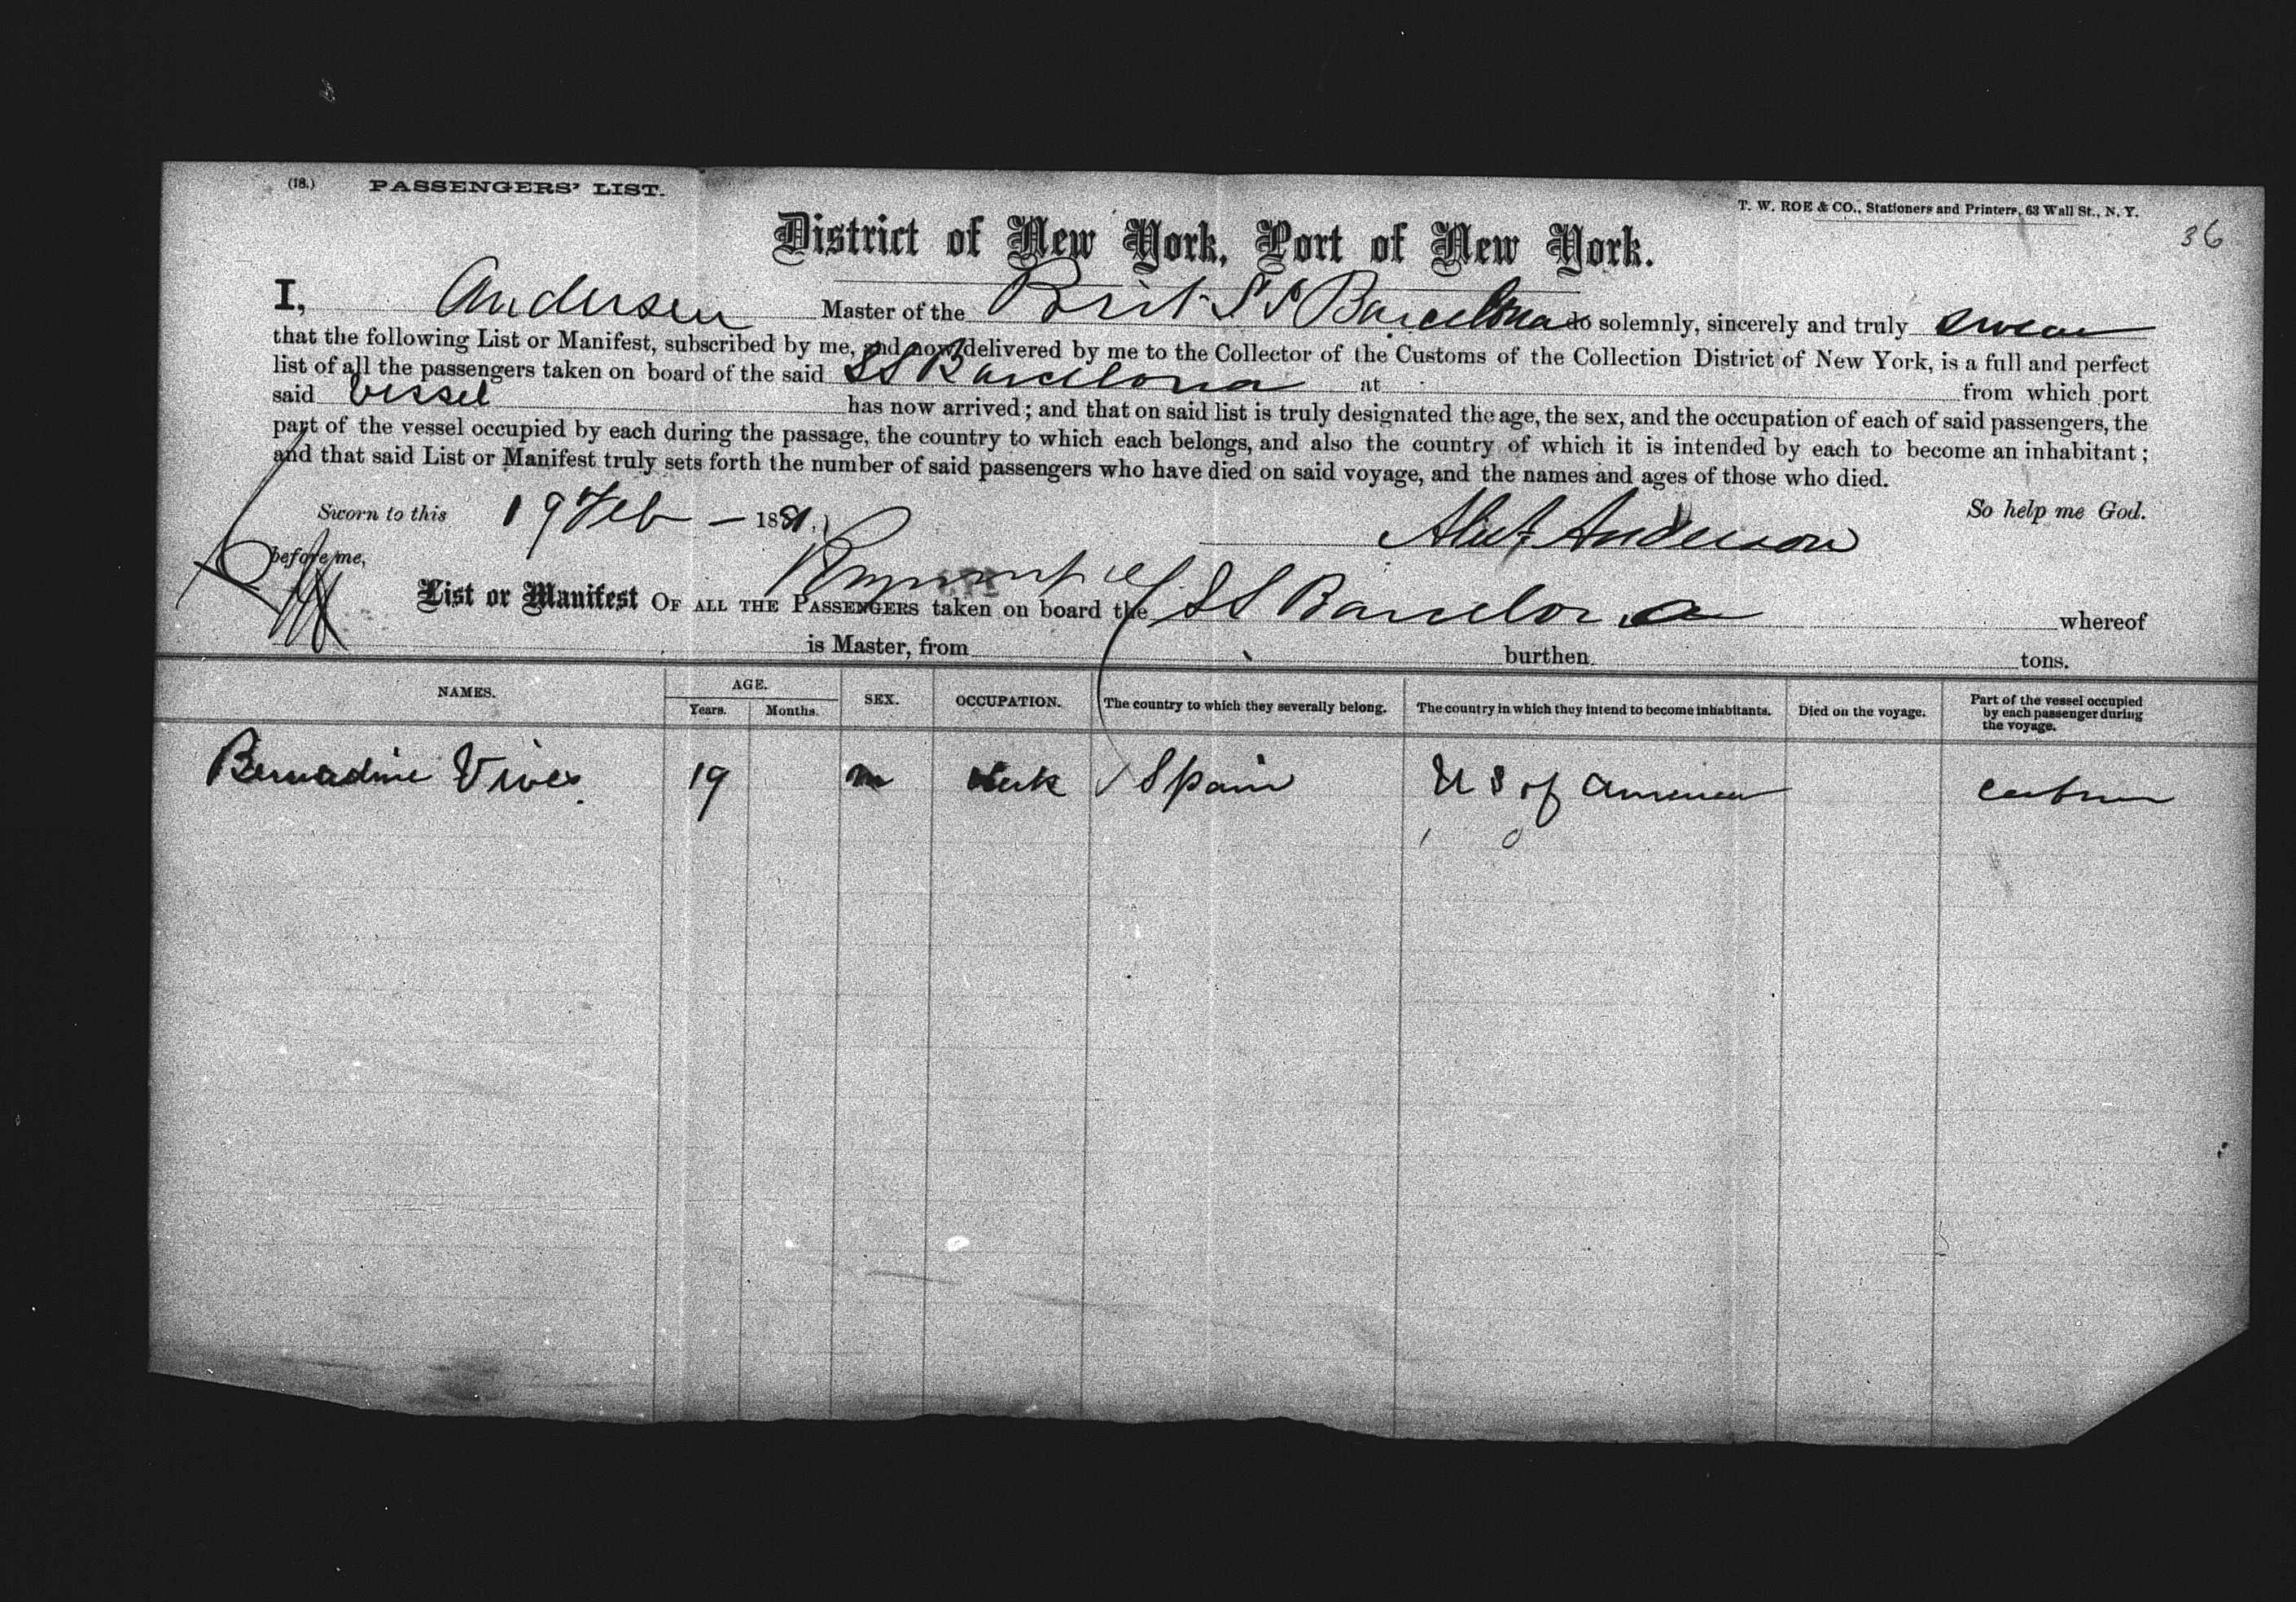 (18.) PASSENGERS' LIST.
T. W. ROE & CO., Stationers and Printers, 63 Wall St., N. Y.
36
District of New York, Port of New York.
I, Andersen Master of the Brit SS Barcelona do solemnly, sincerely and truly swear
that the following List or Manifest, subscribed by me, and now delivered by me to the Collector of the Customs of the Collection District of New York, is a full and perfect
list of all the passengers taken on board of the said SS Barcelona at from which port
said vessel has now arrived; and that on said list is truly designated the age, the sex, and the occupation of each of said passengers, the
part of the vessel occupied by each during the passage, the country to which each belongs, and also the country of which it is intended by each to become an inhabitant;
and that said List or Manifest truly sets forth the number of said passengers who have died on said voyage, and the names and ages of those who died.
Sworn to this 19 Feb - 1881. So help me God.
Alex Anderson
before me,
List or Manifest OF ALL THE PASSENGERS taken on board the SS Barcelona whereof
is Master, from burthen tons.
NAMES. AGE. Years. Months. SEX. OCCUPATION. The country to which they severally belong. The country in which they intend to become inhabitants. Died on the voyage. Part of the vessel occupied by each passenger during the voyage.
Bernadine Vives 19 m clerk Spain U S of America cabin